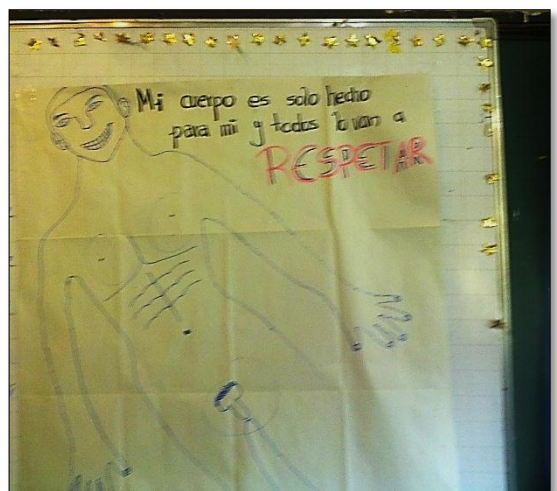 Mi cuerpo es solo hecho
para mi y todos lo van a
RESPETAR